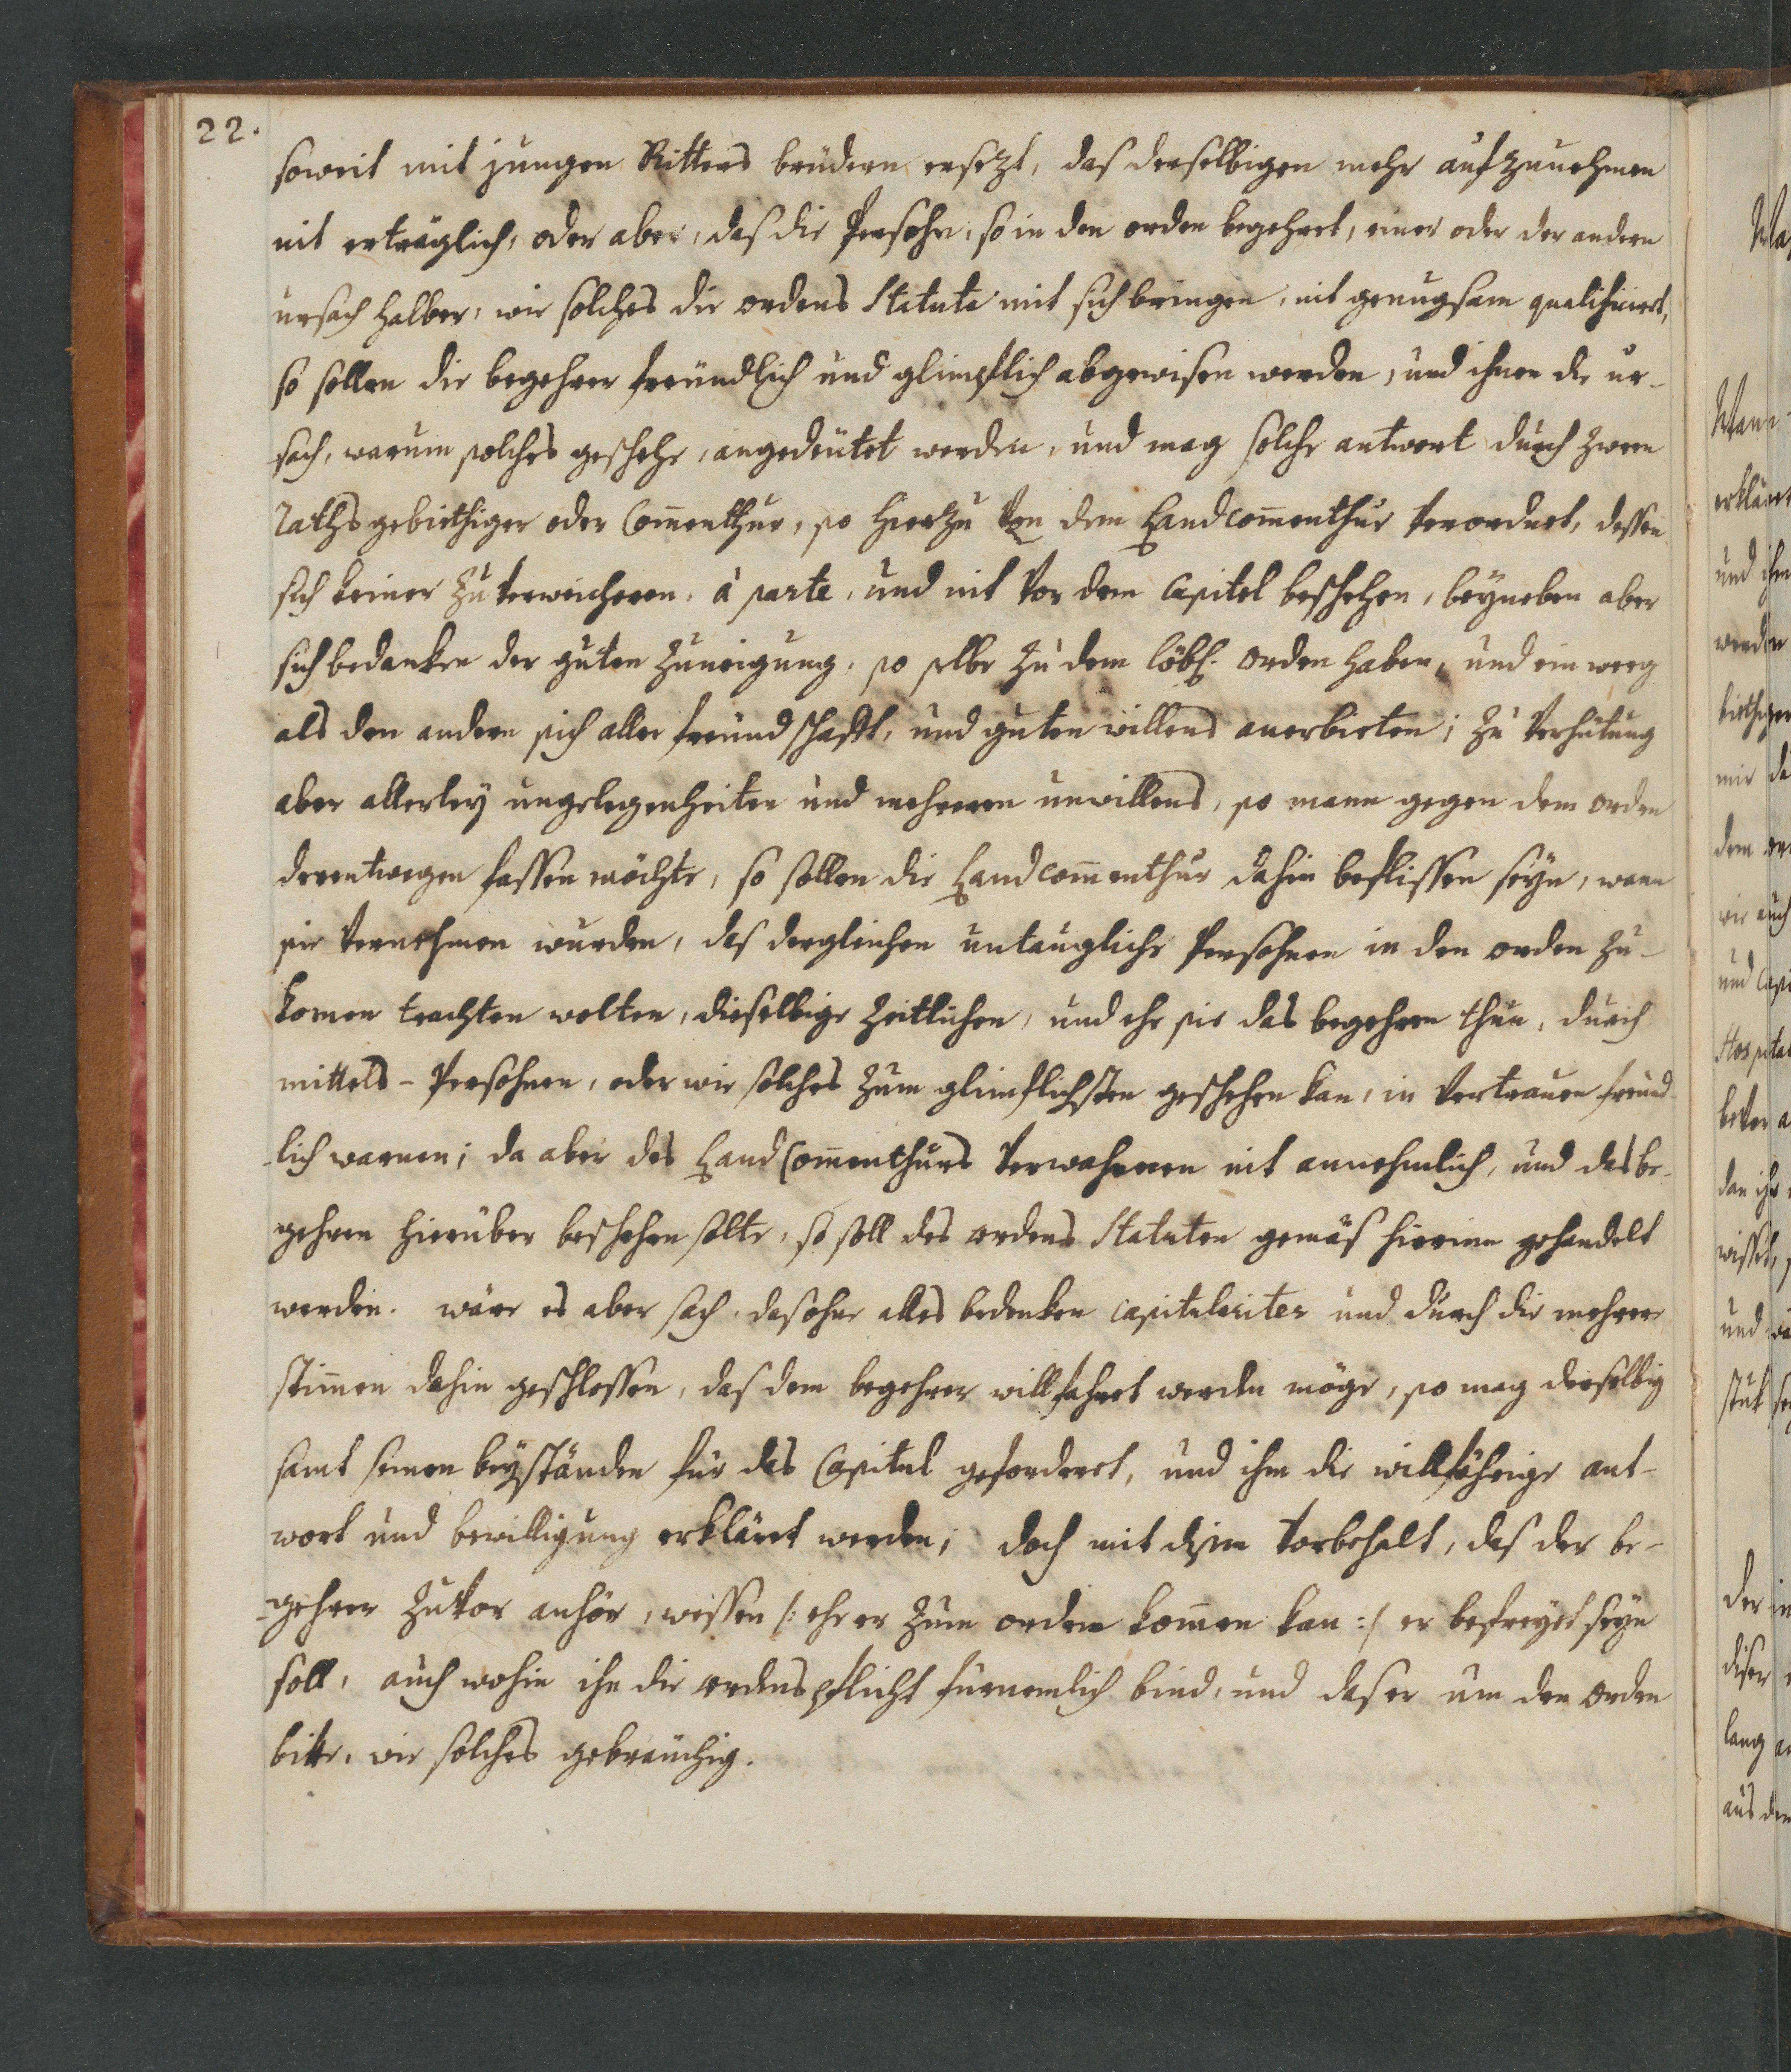 22.
soweit mit jungen Ritters brüdern ersezt, das derselbigen mehr aufzunehmen
nit erträglich, oder aber, das die Persohn, so in den orden begehrt, einer oder der andern
ursach halber, wie solches die ordens Statuta mit sich bringen, nit genugsam qualificiert,
so sollen die begehrer freündlich und glimpflich abgewisen werden, und ihnen die ur-
sach, warum solches geschehe, angedeütet werden, und mag solche antwort durch zween
rathsgebiethiger oder Com̅enthur, so hierzu von dem Landcom̅enthur verordnet, dessen
sich keiner zu verweicheren, à parte, und nit vor dem Capitel beschehen, beyneben aber
sich bedanken der guten zuneigung, so selbe zu dem löbl. orden haben, und ein weeg
als den andern sich aller freündschafft, und guten willens anerbieten; zu verhütung
aber allerley ungelegenheiten und mehreren unwillens, so mann gegen dem orden
derentwegen fassen möchte, so sollen die Landcom̅enthur dahin beflissen seyn, wann
sie vernehmen wurden, das dergleichen untaugliche Persohnen in den orden zu-
komen trachten wolten, dieselbige zeitlichen, und ehe sie das begehren thun, durch
mittels-Persohnen, oder wie solches zum glimflichsten geschehen kan, in vertrauen freünd-
lich warnen; da aber des Land Com̅enthurs verwahrnen nit annehmlich, und das be-
gehren hierüber beschehen solte, so soll des ordens Statuten gemäs hierinn gehandelt
werden. wäre es aber sach, das ohne alles bedenken capitulariter und durch die mehrere
stim̅en dahin geschlossen, das dem begehrer willfahret werden möge, so mag derselbig
samt seinen beyständen für das Capitul geforderet, und ihm die willfährige ant-
wort und bewilligung erkläret werden; doch mit disem vorbehalt, das der be-
gehrer zuvor anhör, wessen /: ehe er zum orden kom̅en kan :/ er befreyet seyn
soll, auch wohin ihn die ordenspflicht fürnemlich bind, und das er um den orden
bitte, wie solches gebräuchig.